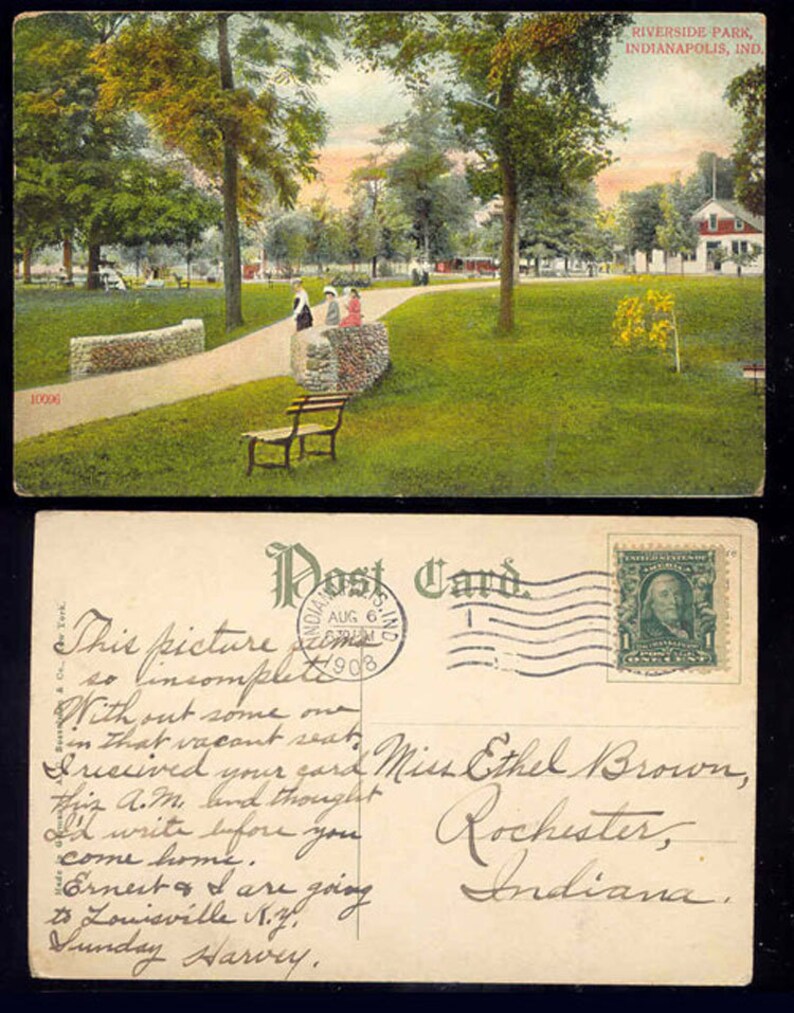 RIVERSIDE PARK,
INDIANAPOLIS, IND.
10096
Post Card.
INDIANAPOLIS, IND
AUG 6
1908
1
UNITED STATES OF
AMERICA
1 1
FRANKLIN
POSTAGE
ONE CENT
This picture seems
so insomplete
Without some one
in that vacant seat,
I received your card
this A.M. and thought
I'd write before you
come home.
Ernest & I are going
to Louisville Ky.
Sunday Harvey.
Miss Ethel Brown,
Rochester,
Indiana.
Made in Germany & Co., New York.